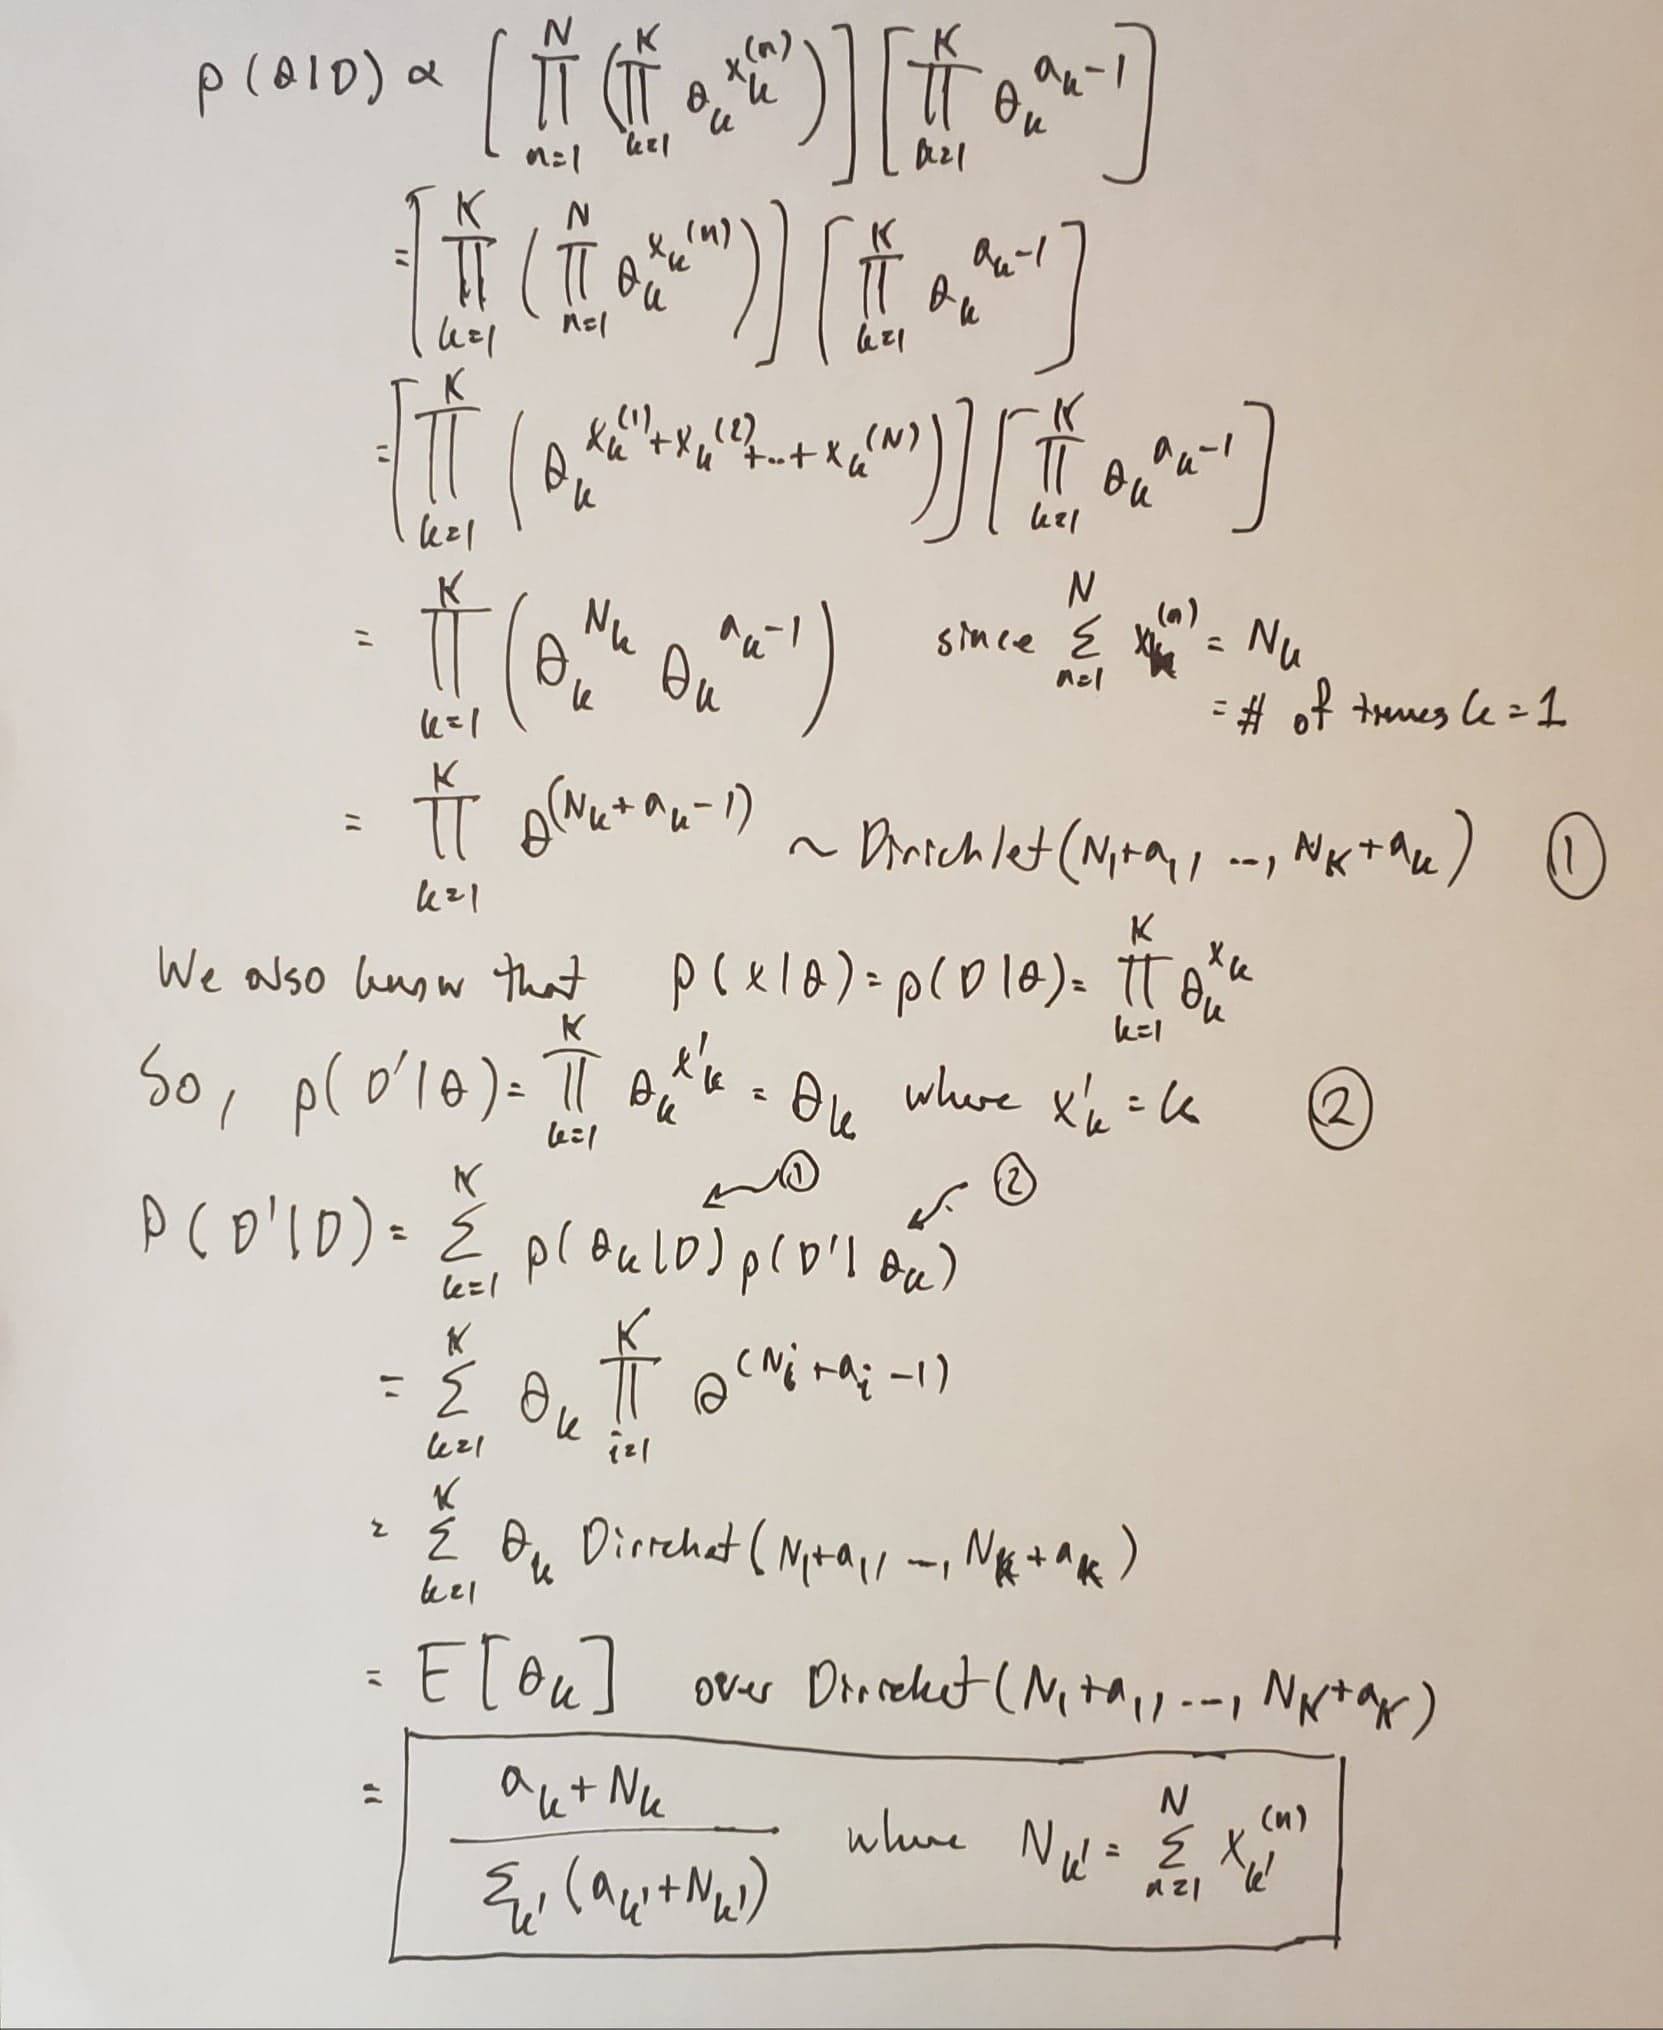 p(θ|D) ∝ [ ∏_{n=1}^{N} ( ∏_{k=1}^{K} θ_k^{x_k^{(n)}} ) ] [ ∏_{k=1}^{K} θ_k^{a_k-1} ]
= [ ∏_{k=1}^{K} ( ∏_{n=1}^{N} θ_k^{x_k^{(n)}} ) ] [ ∏_{k=1}^{K} θ_k^{a_k-1} ]
= [ ∏_{k=1}^{K} ( θ_k^{x_k^{(1)}+x_k^{(2)}+..+x_k^{(N)}} ) ] [ ∏_{k=1}^{K} θ_k^{a_k-1} ]
= ∏_{k=1}^{K} ( θ_k^{N_k} θ_k^{a_k-1} ) since Σ_{n=1}^{N} x_k^{(n)} = N_k
= # of times k = 1
= ∏_{k=1}^{K} θ^{(N_k+a_k-1)} ~ Dirichlet(N_1+a_1, --, N_K+a_k) ①
We also know that p(x|θ) = p(D|θ) = ∏_{k=1}^{K} θ_k^{x_k}
So, p(D'|θ) = ∏_{k=1}^{K} θ_k^{x'_k} = θ_k where x'_k = k ②
① ②
P(D'|D) = Σ_{k=1}^{K} p(θ_k|D) p(D'|θ_k)
= Σ_{k=1}^{K} θ_k ∏_{i=1}^{K} θ^{(N_i+a_i-1)}
= Σ_{k=1}^{K} θ_k Dirichet(N_1+a_1, --, N_K+a_K)
= E[θ_k] over Diricket(N_1+a_1, ---, N_K+a_K)
= (a_k+N_k) / (Σ_{k'} (a_{k'}+N_{k'})) where N_{k'} = Σ_{n=1}^{N} x_{k'}^{(n)}